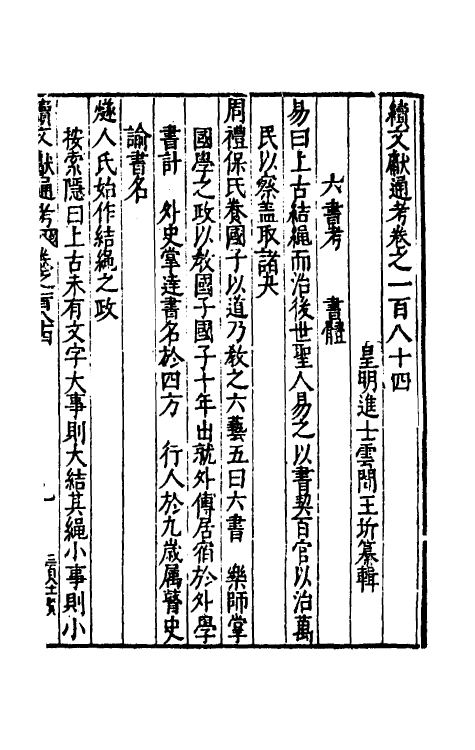 續文獻通考卷之一百八十四
皇明進士雲間王圻纂輯
六書考　書體
易曰上古結繩而治後世聖人易之以書契百官以治萬
民以察蓋取諸夬
周禮保氏養國子以道乃敎之六藝五曰六書　樂師掌
國學之政以敎國子國子十年出就外傳居宿於外學
書計　外史掌達書名於四方　行人於九歲属瞽史
諭書名
燧人氏始作結繩之政
按索隱曰上古未有文字大事則大結其繩小事則小
續文獻通考 卷之一百八十四